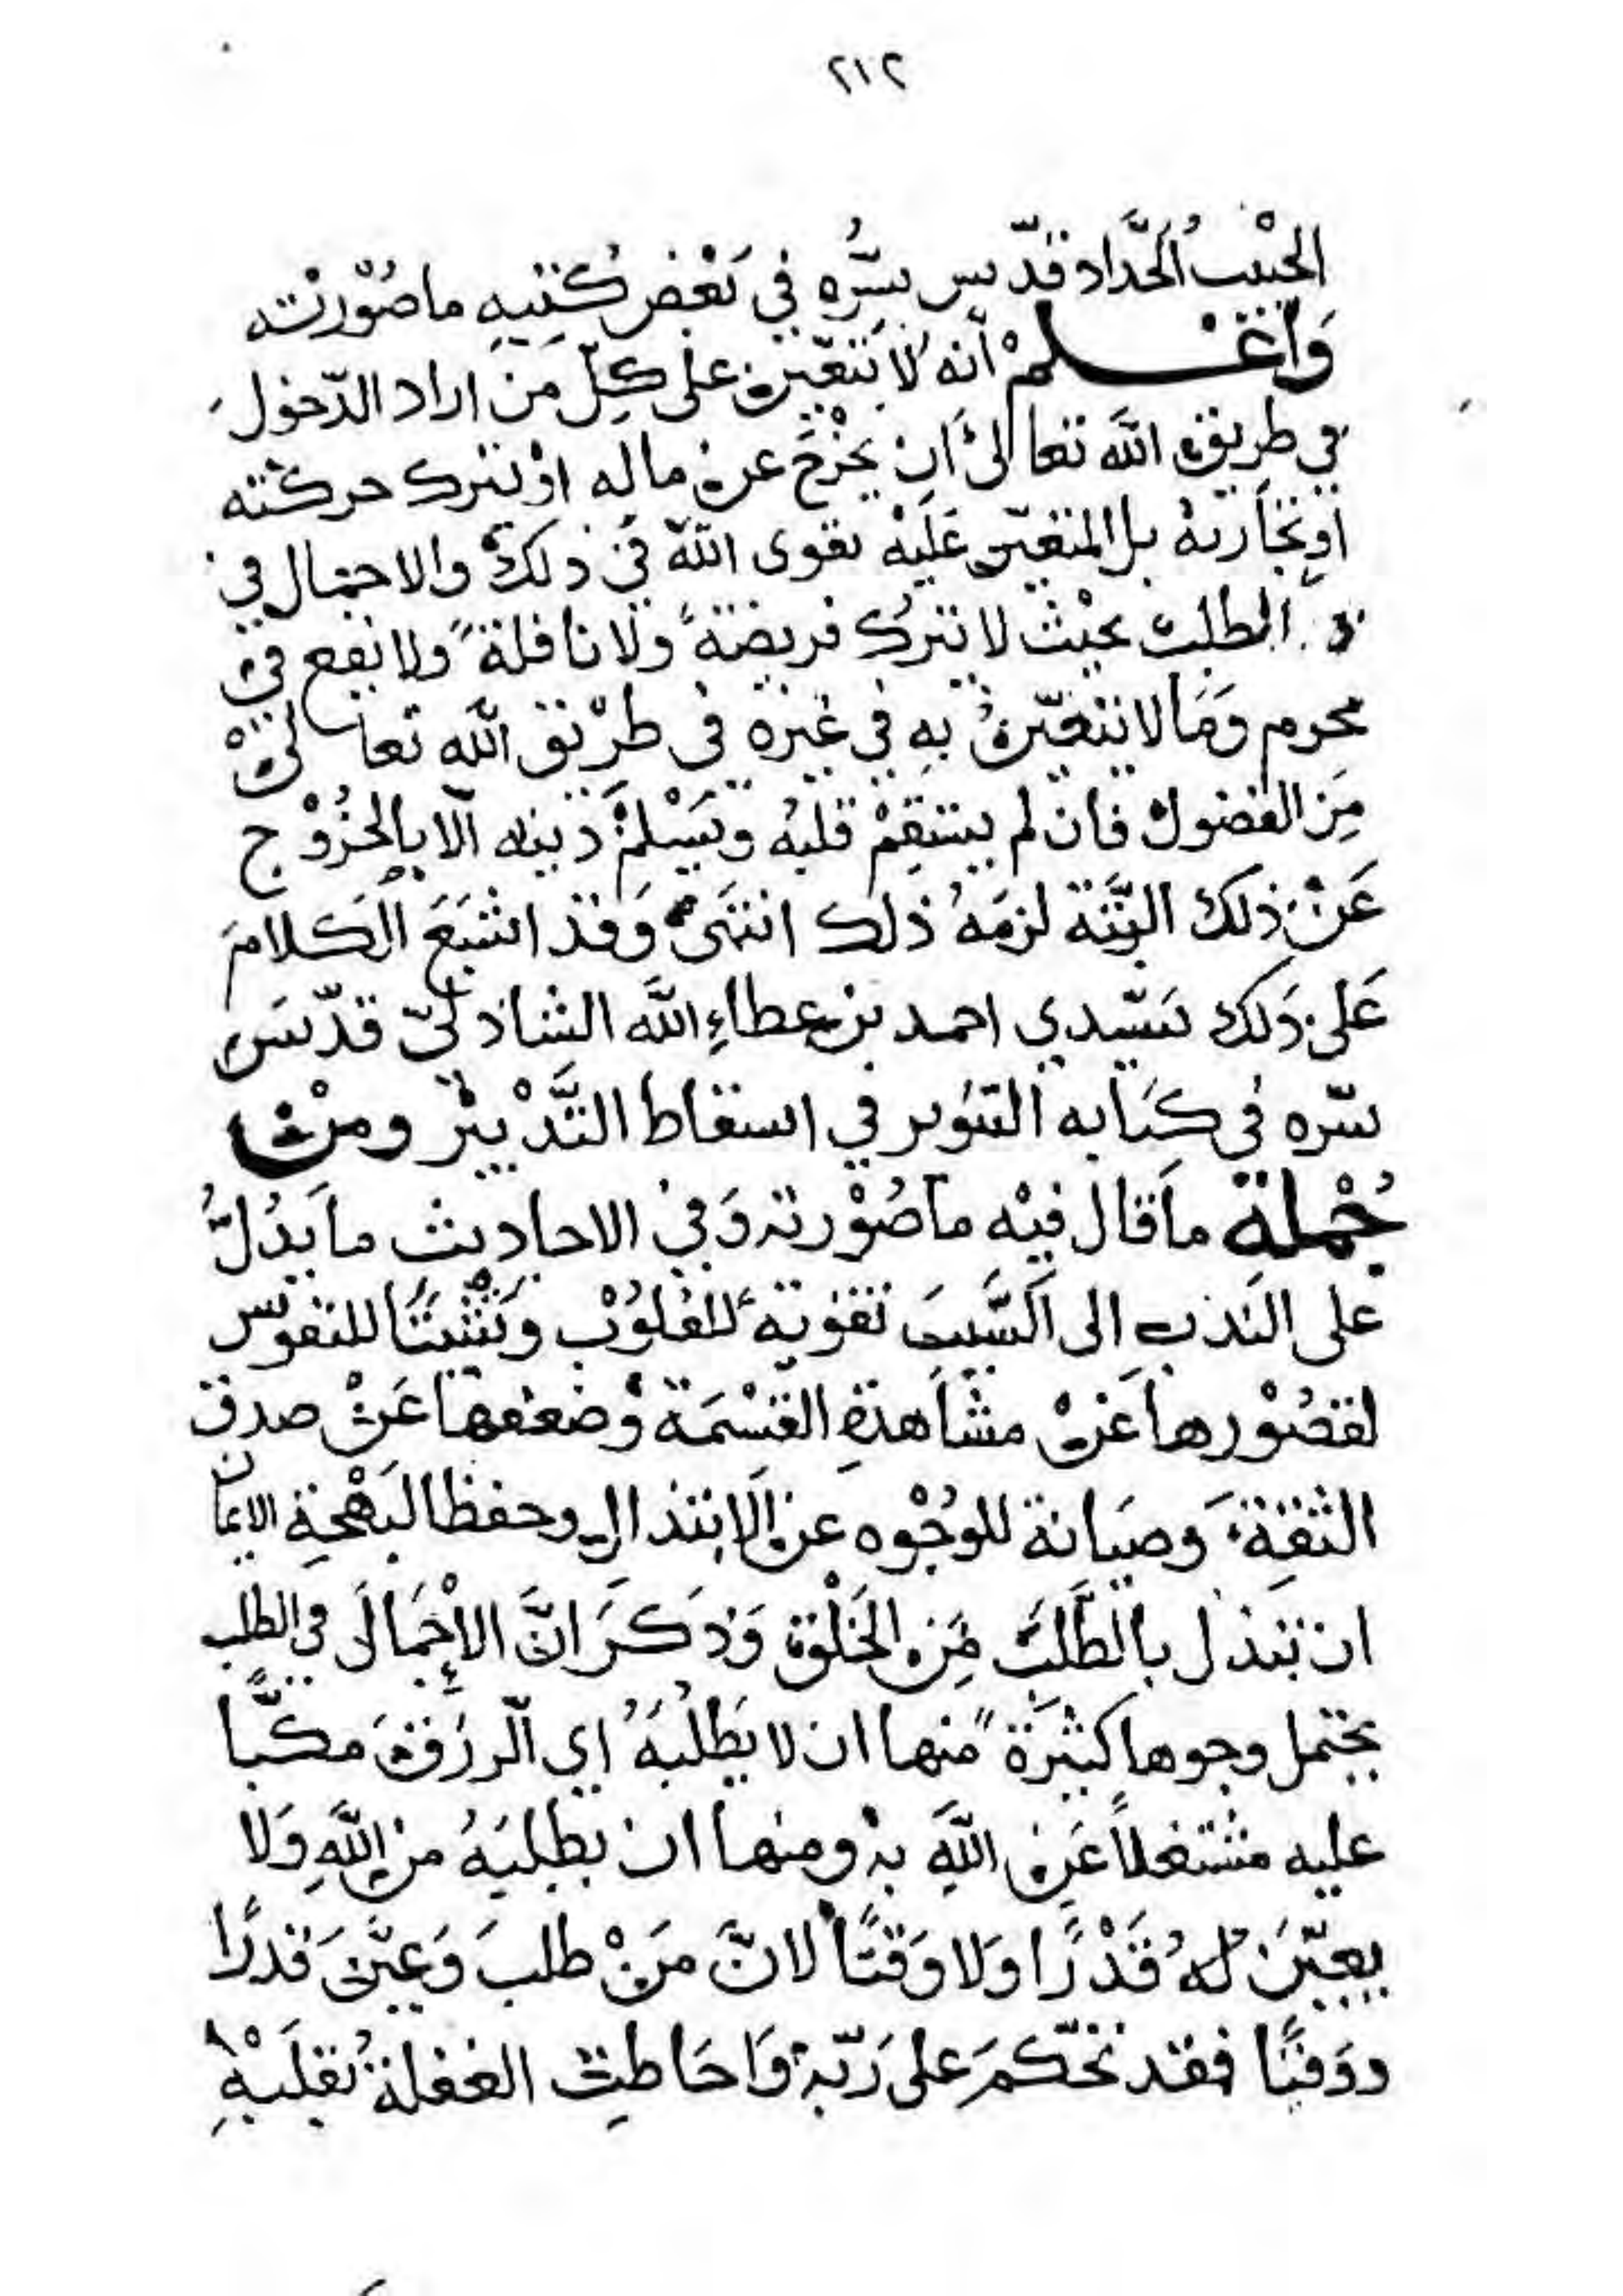 ٢١٢
الحبيب الحَدَّاد قدّس سِرُّه في بَعْض كُتبِهِ ما صُوْرته
وَاعْلمْ أنه لا يَتَعَيّن على كِلّ مَن اراد الدّخول
في طريق اللَّه تعالى أن يخْرُجَ عن ماله اوْ يترك حركته
أو تجَارته بل المتعيّن عَلَيْه تقوى اللّه في ذلك والاجمال في
الطلب بحيْث لا يترك فريضة ولا نافلةً ولا يقع في
محرم وَمَا لا يتعَيّن بهِ في غيره في طرْيق اللَّه تعالى
مِنَ الفضول فان لم يستقِمْ قلبه ويَسْلمْ دينه الا بالخُرُوْج
عَنْ ذلك البَتَّة لزمَهُ ذلك انتهَى وَقد اشْبَعَ الكلامَ
عَلى ذَلك سَيّدي احمد بن عطاءِ اللَّه الشاذليّ قدّسَ
سرّه في كتَابه التنوير في اسقاط التَّدْبير ومن
جُمْلة ماَ قال فيْه ما صُوْرته وَفي الاحاديث ما يَدُلُّ
على النَدب الى السَّببَ تقوية للقلُوْب وتَثْبيتًا للنفوس
لقصُوْرها عَنْ مشاَهدةِ القِسْمَة وضعفها عَنْ صدق
الثقة وَصيَانة للوُجُوْه عن الابتذالِ وحفظا لبَهْجَةِ الايمان
ان تبتذل بالطَّلَب مِن الخَلْق وَذكَرَ انَّ الإجْمَالَ في الطلب
يحتمل وجوها كثيرَة منها ان لا يَطلُبَهُ اي الرزقَ مكبًّا
عليه مشتغلاً عَنِ اللَّهِ به ومنها ان يطلبَهُ من اللَّهِ وَلا
يعيّنَ لهُ قَدْرًا وَلا وَقتًا لانَّ مَنْ طلبَ وَعيَّنَ قدرًا
ووَقتًا فقد تَحّكمَ على رَبّه وَاحَاطتِ الغفلة بقلَبْهِ